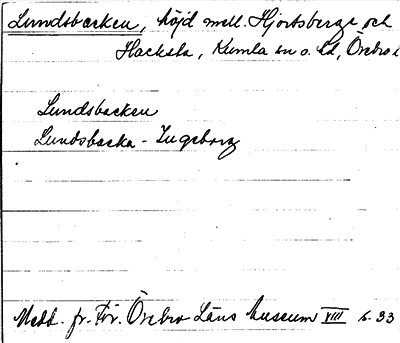 Lundsbacken, höjd mell. Hjortsberga och
Hacksta, Kumla sn o. hd, Örebro l
Lundsbacken
Lundsbacka-Ingeborg
Medd. fr. För. Örebro Läns Museum VIII s. 33